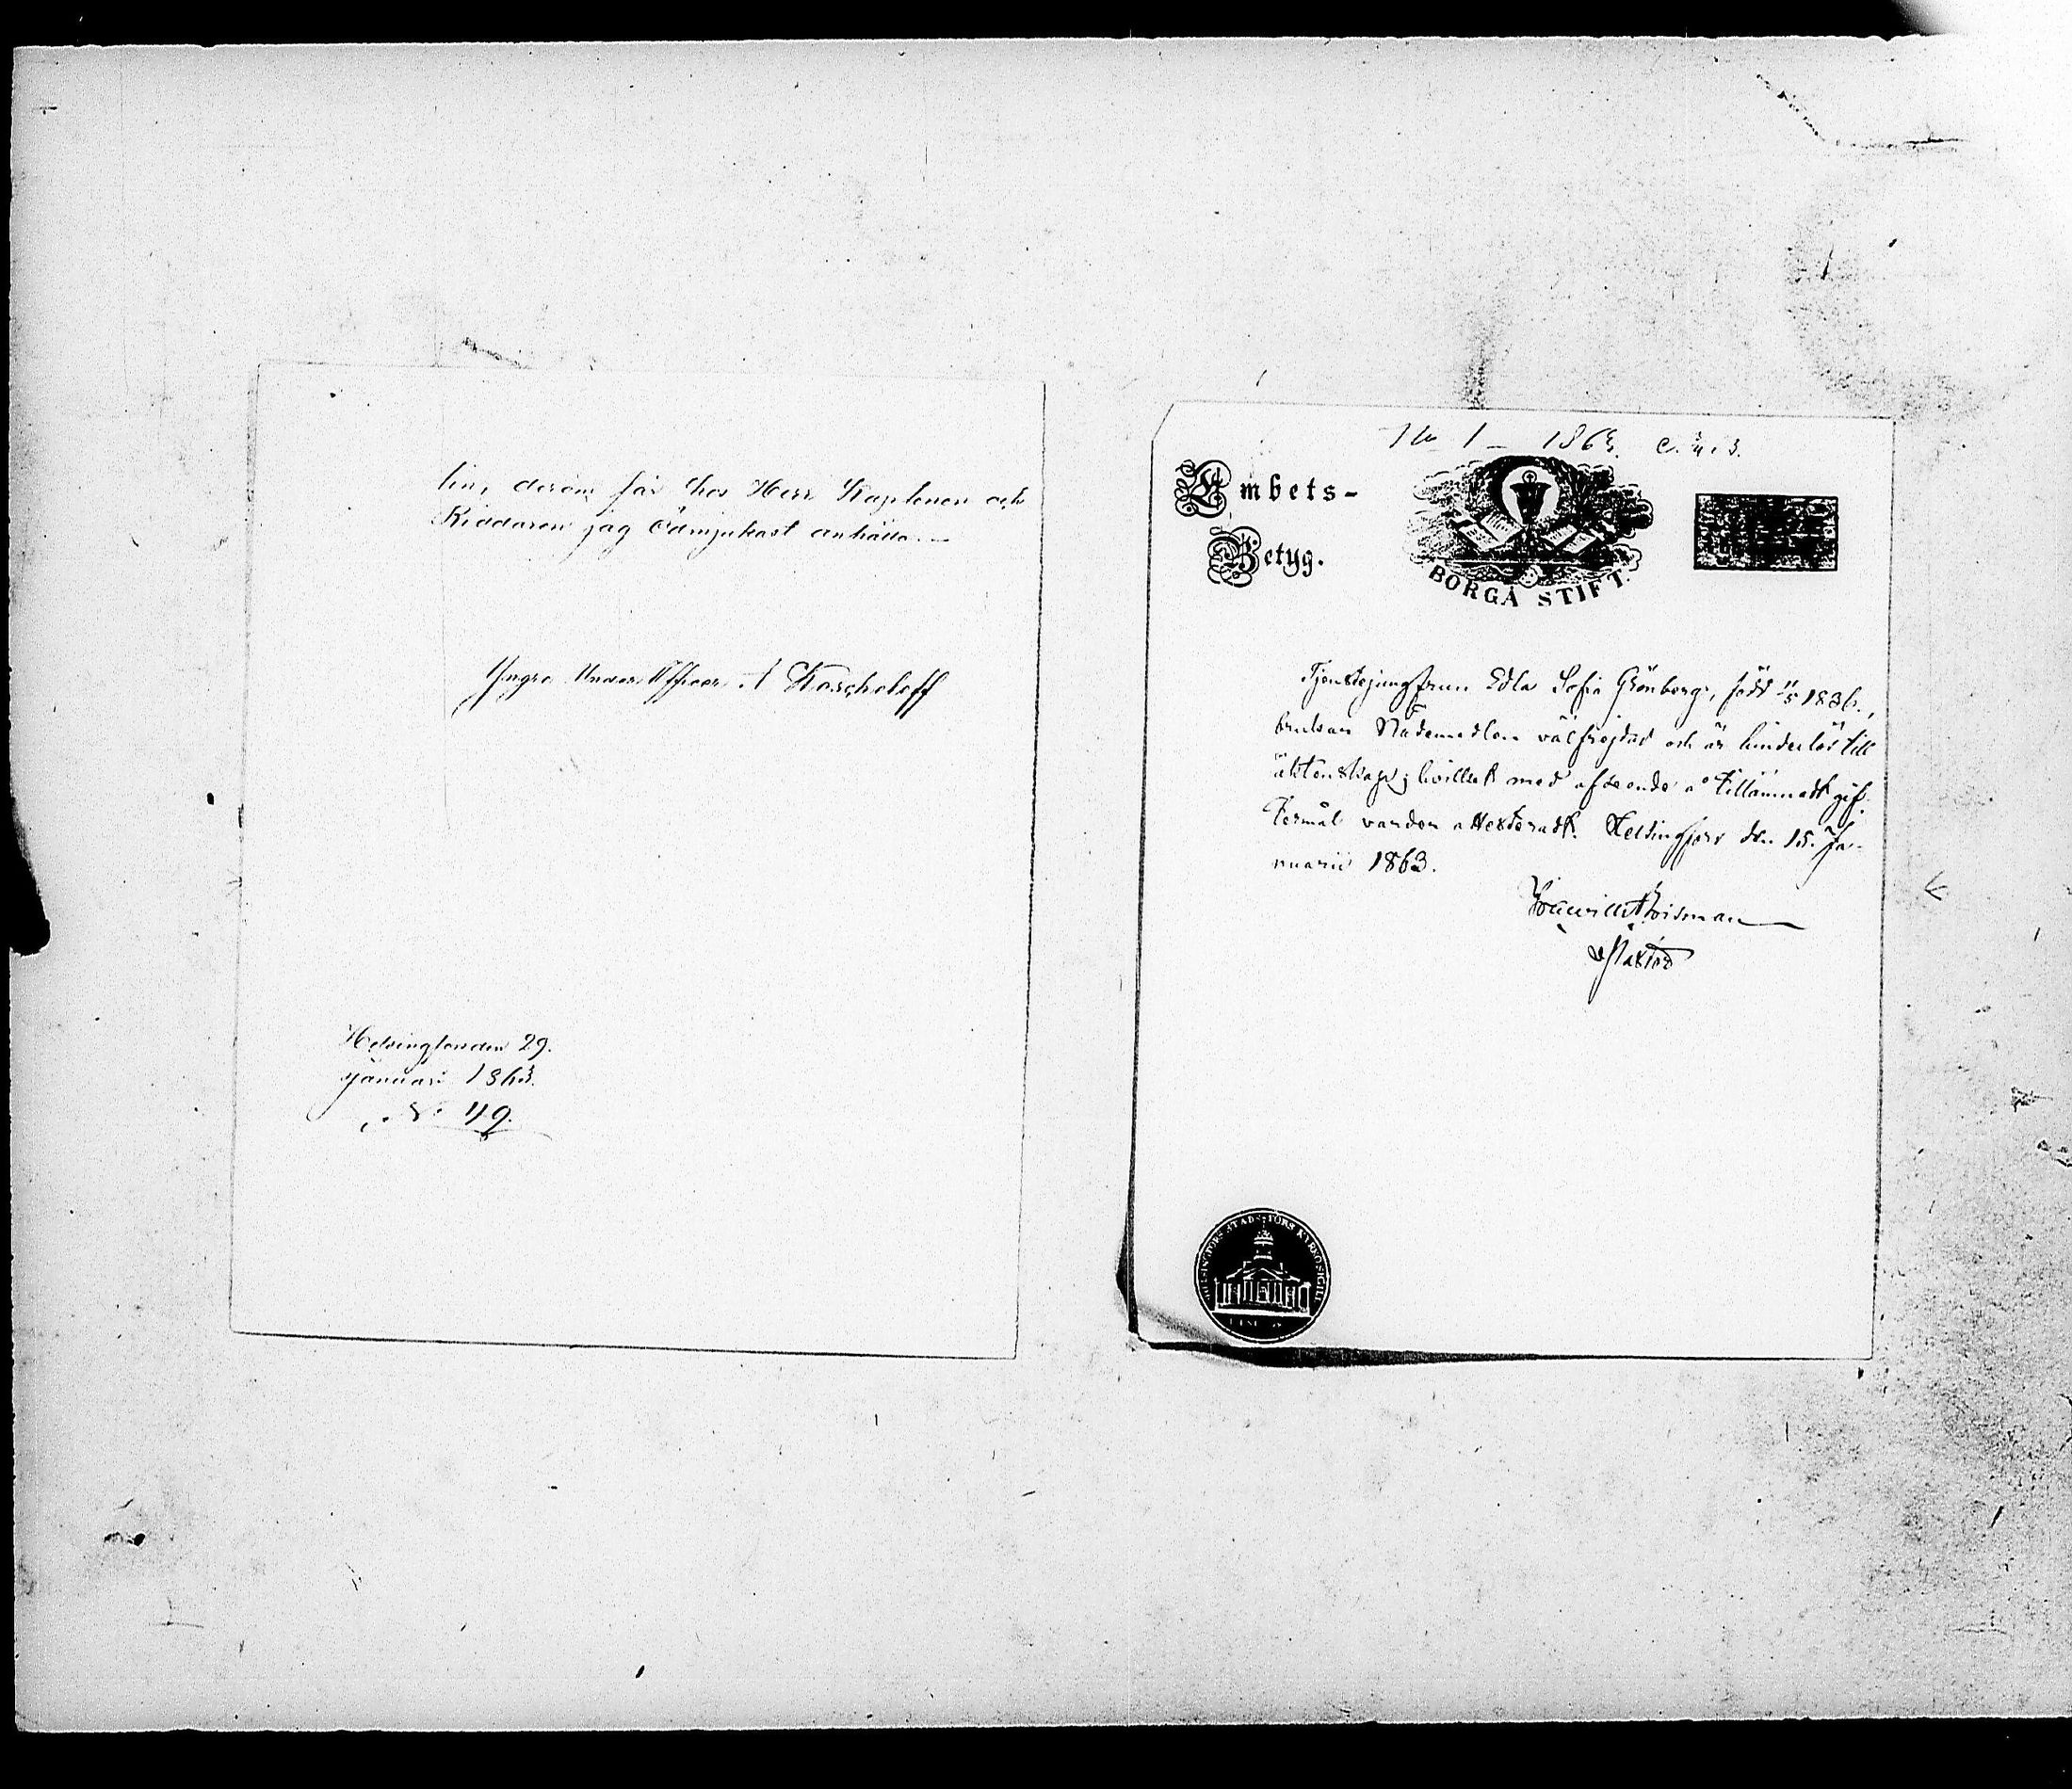 lin, derom får hos Herr Kaptenen och
Riddaren jag ödmjukast anhålla. —
Yngre Under Officer A Koscheleff
Helsingfors den 29.
Januari 1863.
No 49.
No 1 — 1863.
Embets-
Betyg.
BORGÅ STIFT.
Tjenstejungfrun Edla Sofia Grönberg, född 11/5 1836.,
brukar Nådemedlen välfrejdad och är hinderlös till
äktenskap; hvilket med afseende å tillämnadt gif-
termål varder attesteradt. Helsingfors den 15. Ja-
nuarii 1863.
Pastor
HELSINGFORS STADSFÖRS. KYRKOSIGILL